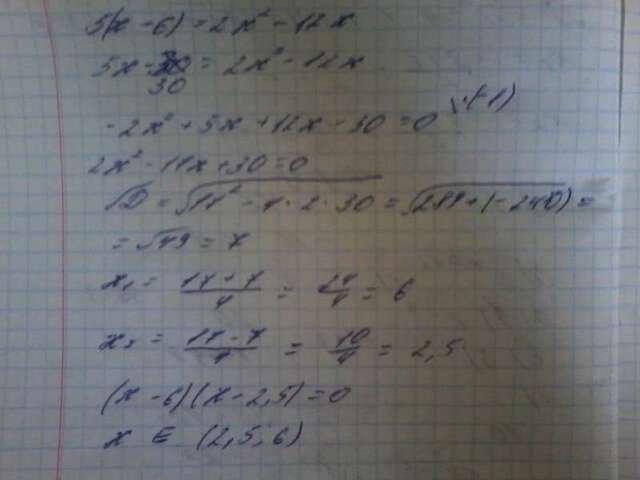 5(x - 6) = 2x² - 12x
5x - 30 = 2x² - 12x
-2x² + 5x + 12x - 30 = 0 \·(-1)
2x² - 17x + 30 = 0
√D = √17² - 4 · 2 · 30 = √289 + (-240) =
= √49 = 7
x₁ = 17 + 7 / 4 = 24 / 4 = 6
x₂ = 17 - 7 / 4 = 10 / 4 = 2,5
(x - 6)(x - 2,5) = 0
x ∈ (2,5; 6)